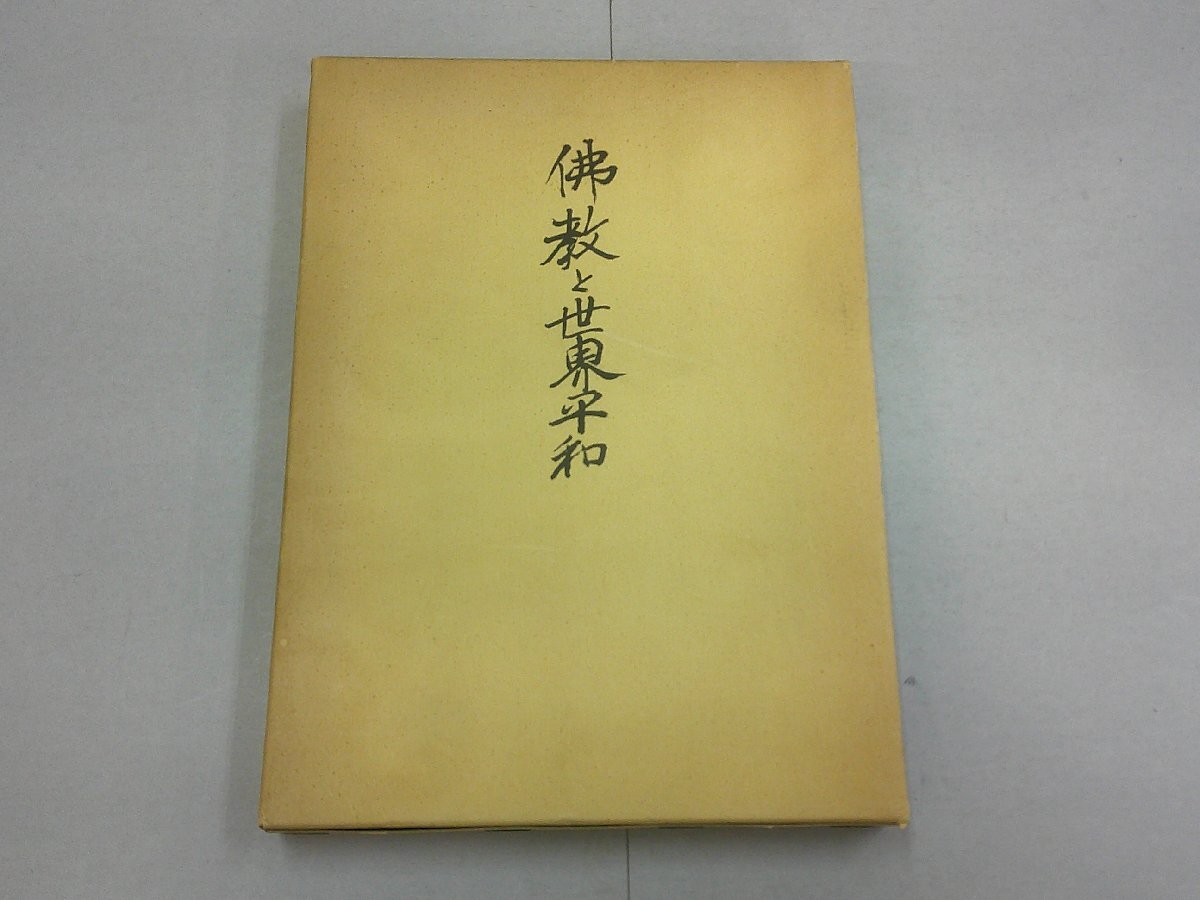 佛教と世界平和